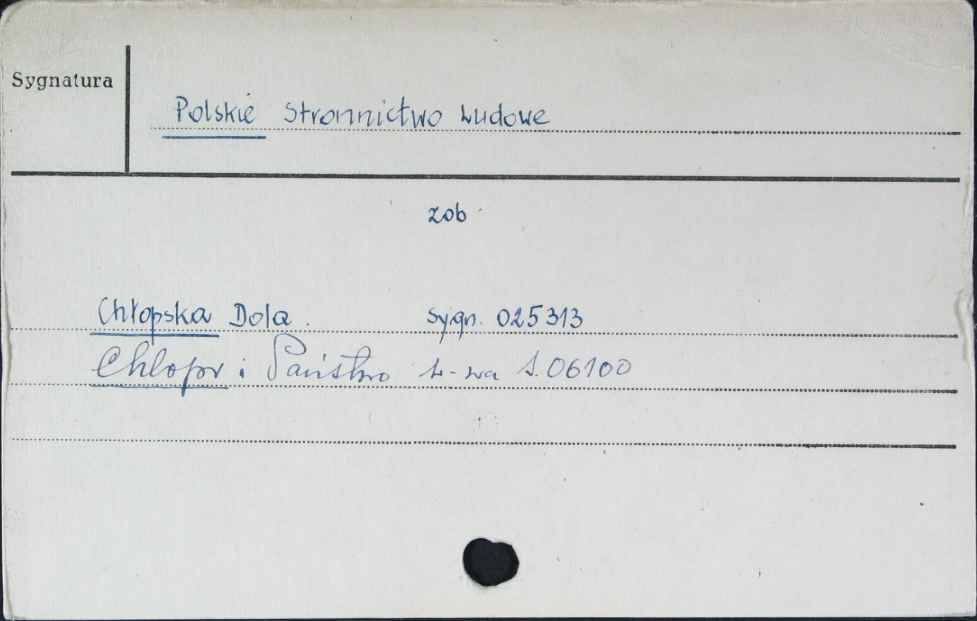 Sygnatura
Polskie Stronnictwo Ludowe
zob.
Chłopska Dola. Sygn. 025313
Chłopi i Państwo W-wa S.06100